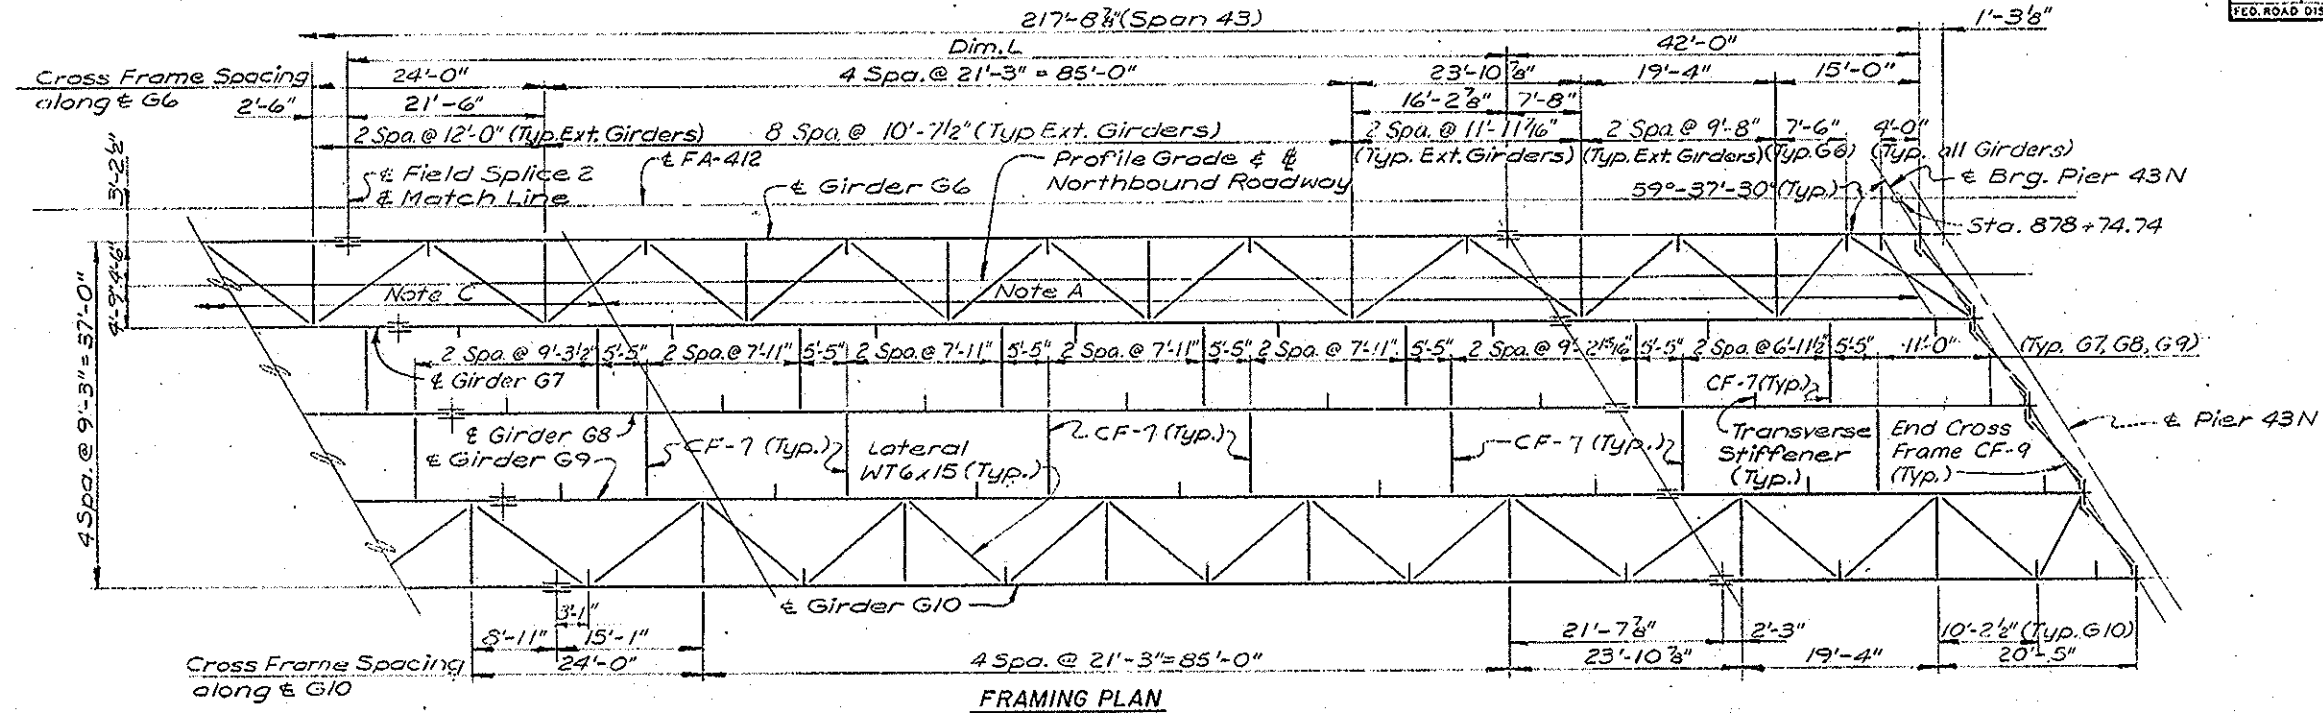 FED. ROAD DIS
217'-8 7/8" (Span 43)
1'-3 1/8"
Dim. L
42'-0"
Cross Frame Spacing
along ℄ G6
24'-0"
4 Spa. @ 21'-3" = 85'-0"
23'-10 7/8"
19'-4"
15'-0"
2'-6"
21'-6"
16'-2 7/8"
7'-8"
2 Spa. @ 12'-0" (Typ. Ext. Girders)
8 Spa. @ 10'-7 1/2" (Typ Ext. Girders)
2 Spa. @ 11'-11 7/16"
(Typ. Ext. Girders)
2 Spa. @ 9'-8"
(Typ. Ext Girders)
7'-6"
(Typ. G6)
4'-0"
(Typ. all Girders)
3'-2 1/2"
℄ Field Splice 2
& Match Line
℄ FA-412
℄ Girder G6
Profile Grade & ℄
Northbound Roadway
59°-37'-30" (Typ.)
℄ Brg. Pier 43N
Sta. 878+74.74
4 Spa. @ 9'-3" = 37'-0"
4'-9"
4'-6"
Note C
Note A
2 Spa. @ 9'-3 1/2"
5'-5"
2 Spa. @ 7'-11"
5'-5"
2 Spa. @ 7'-11"
5'-5"
2 Spa. @ 7'-11"
5'-5"
2 Spa. @ 7'-11"
5'-5"
2 Spa. @ 9'-2 15/16"
5'-5"
2 Spa. @ 6'-11 1/2"
5'-5"
11'-0"
(Typ. G7, G8, G9)
℄ Girder G7
CF-7 (Typ.)
℄ Girder G8
℄ Girder G9
CF-7 (Typ.)
Lateral
WT6x15 (Typ.)
CF-7 (Typ.)
CF-7 (Typ.)
Transverse
Stiffener
(Typ.)
End Cross
Frame CF-9
(Typ.)
℄ Pier 43N
℄ Girder G10
3'-1"
8'-11"
15'-1"
21'-7 7/8"
2'-3"
10'-2 1/2" (Typ. G10)
Cross Frame Spacing
along ℄ G10
24'-0"
4 Spa. @ 21'-3" = 85'-0"
23'-10 7/8"
19'-4"
20'-5"
FRAMING PLAN